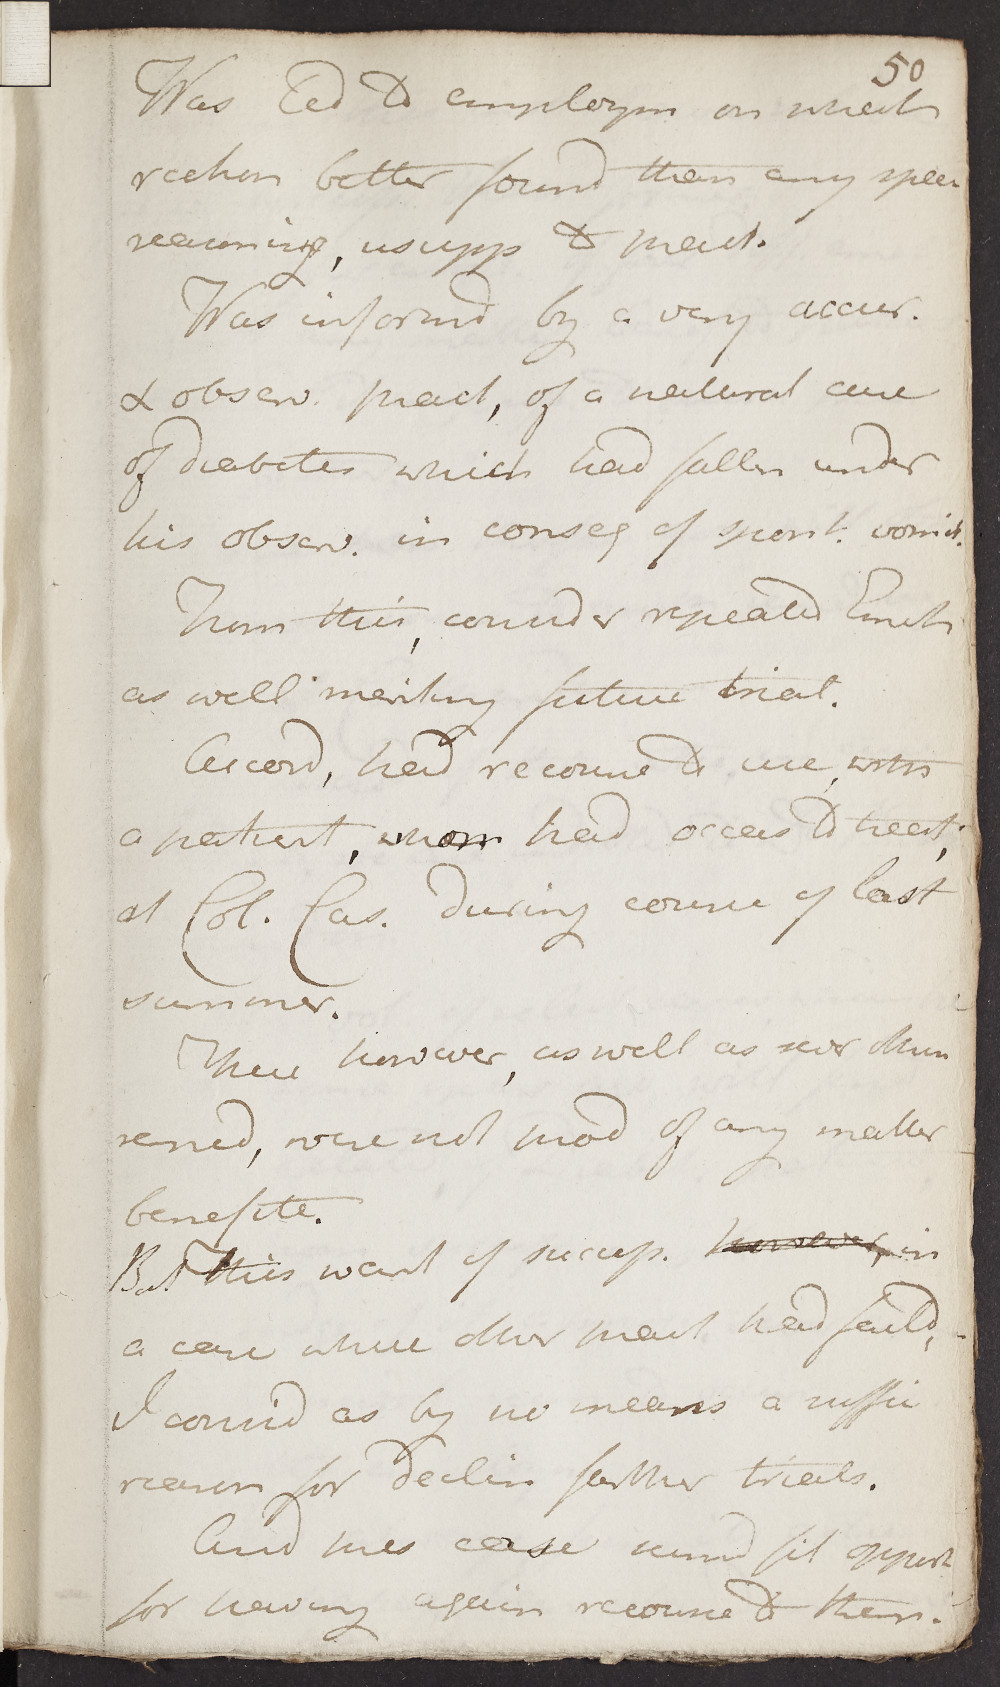 50
Was led to employm on which
reckon better found than any specu
reasoning, viz supp to pract.
Was informd by a very accur.
& observ. pract, of a natural cure
of diabetes which had fallen under
his observ. in conseq of spont. vomit.
From this, consider repeated Emet
as well meriting future trial.
Accord, had recourse to use, with
a patient, whom had occas to treat,
at Col. Cas. during course of last
summer.
These however, as well as sever other
remed, were not prod of any matter
benefite.
But this want of success. however, in
a case where other pract had faild,
I considd as by no means a suffic
reason for declin farther trials.
And pres case seemd fit opport
for having again recourse to them.